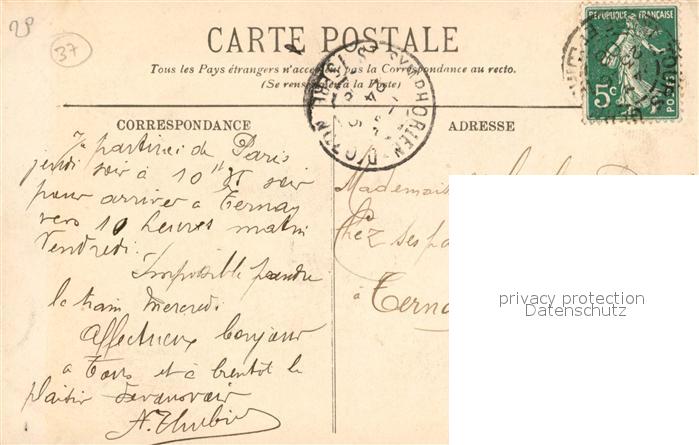 29
37
CARTE POSTALE
Tous les Pays étrangers n'acceptent pas la Correspondance au recto.
(Se renseigner à la Poste)
RÉPUBLIQUE FRANÇAISE
5c
POSTES
ST SYMPHORIEN-D'OZON ISÈRE
CORRESPONDANCE
ADRESSE
Je partirai de Paris
jeudi soir à 10 h soir
pour arriver à Ternay
vers 10 heures matin
Vendredi.
Impossible prendre
le train Mercredi
Affectueux bonjour
a Tous et à bientot le
plaisir
Mademois
Chez ses pa
à Terna
privacy protection
Datenschutz